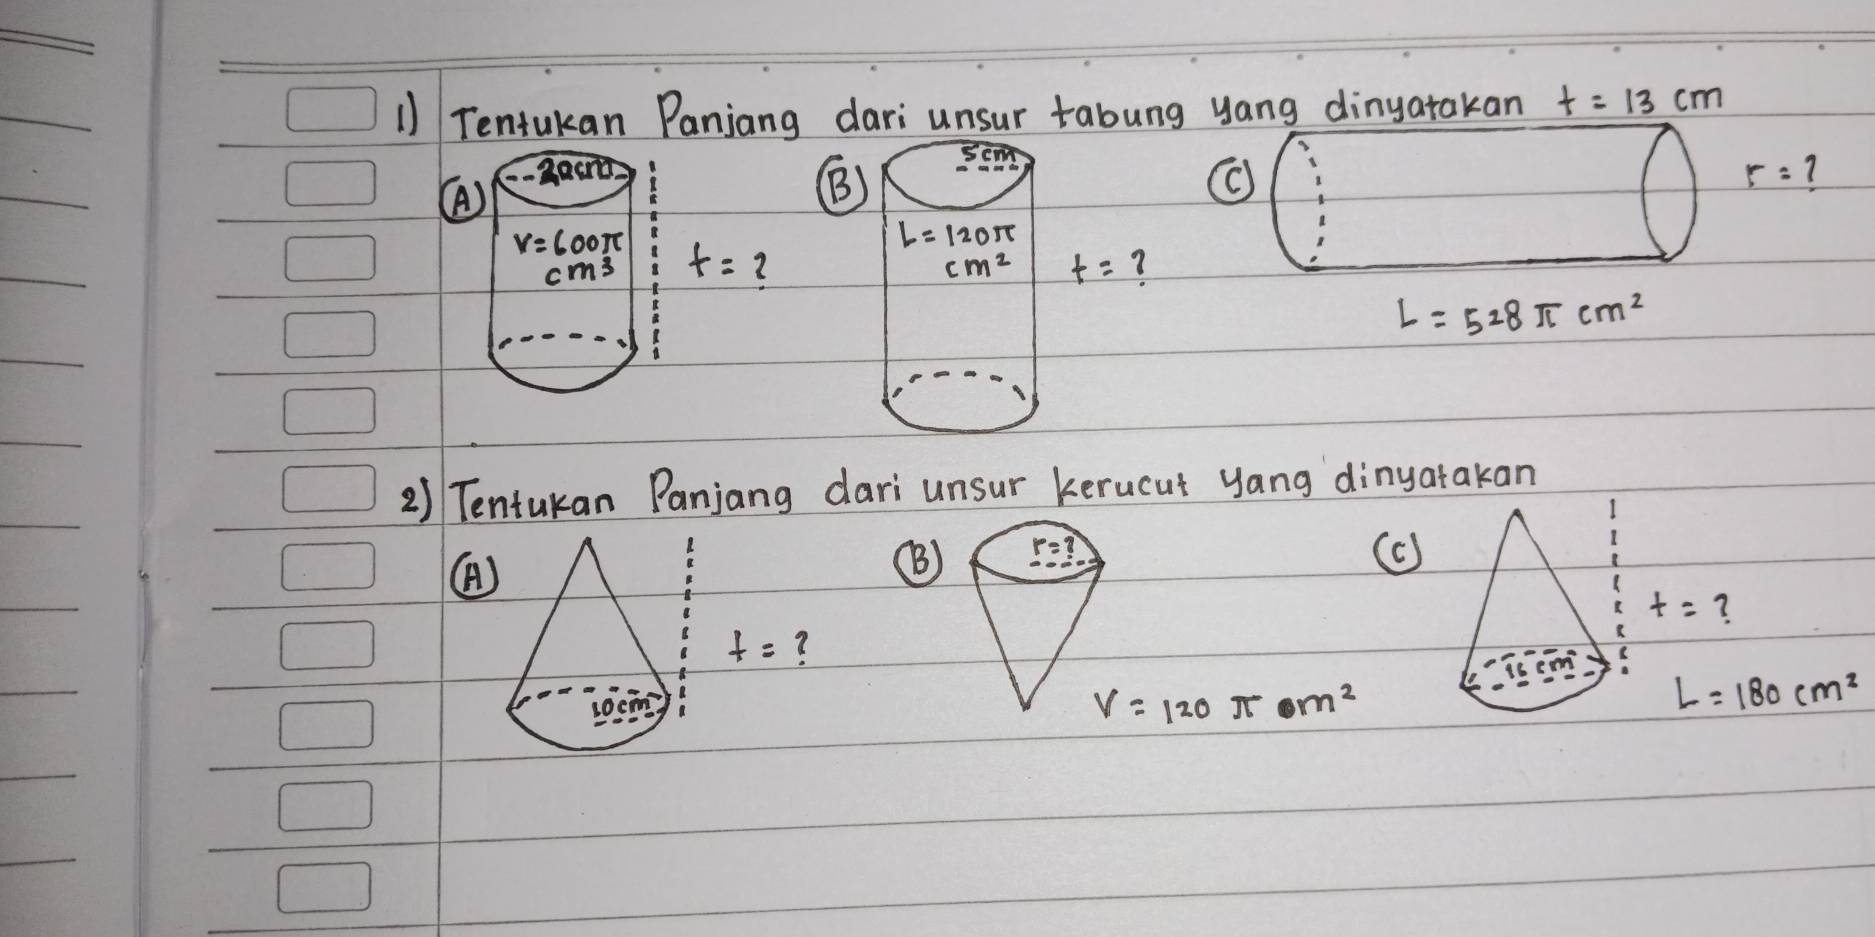 1) Tentukan Panjang dari unsur tabung yang dinyatakan t = 13 cm
(A) 20cm
V = 600π
cm³
t = ?
(B) 5cm
L = 120π
cm²
t = ?
(C)
r = ?
L = 528 π cm²
2) Tentukan Panjang dari unsur kerucut yang dinyatakan
(A)
t = ?
10cm
(B) r=?
V = 120 π cm²
(C)
t = ?
16 cm
L = 180 cm²